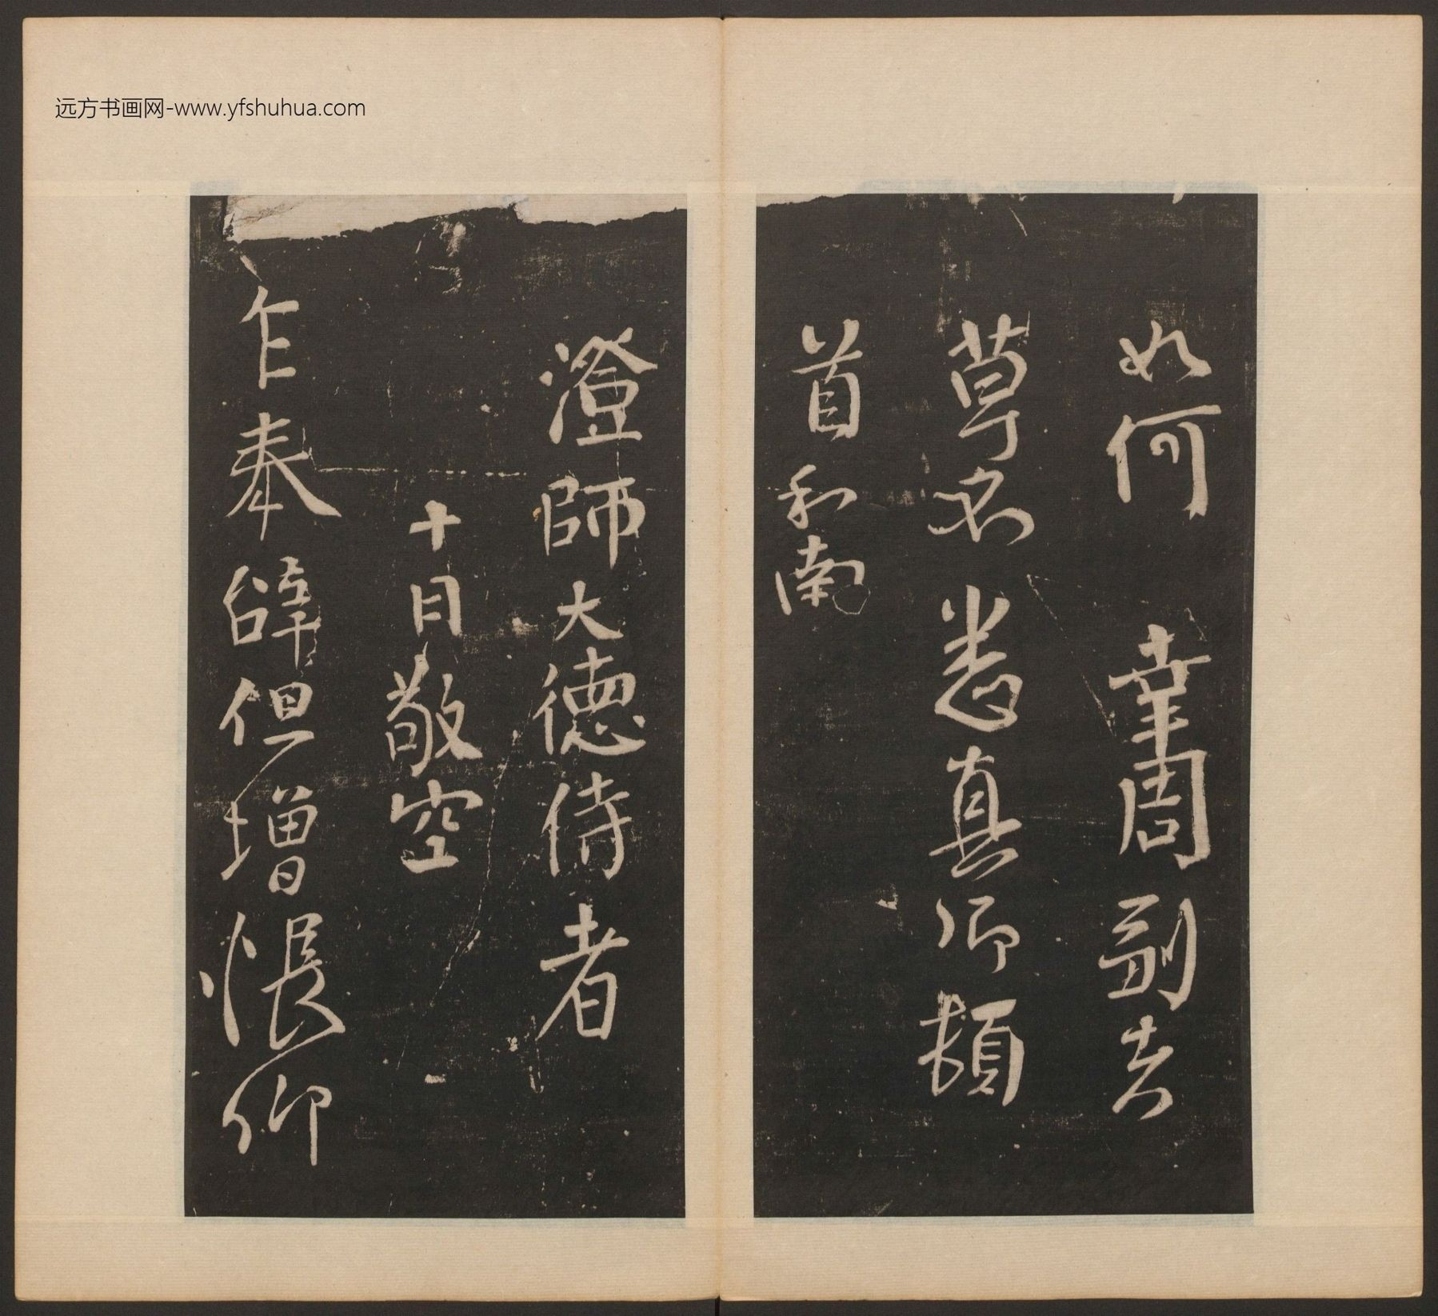 远方书画网-www.yfshuhua.com
如何 幸周副老
草不悉真卿頓
首和南
澄師大德侍者
十日敬空
乍奉辝但增悵仰